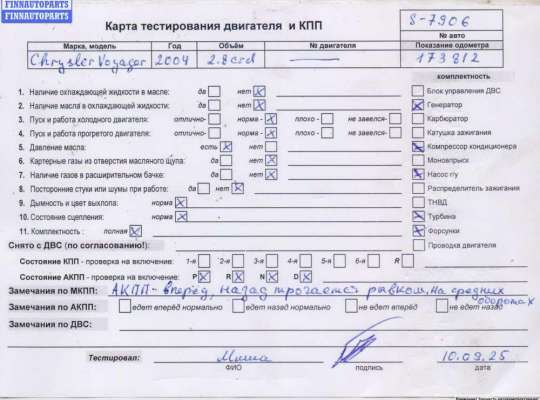 FINNAUTOPARTS
FINNAUTOPARTS
Карта тестирования двигателя и КПП
S-7906
№ авто
Марка, модель Год Объём № двигателя Показание одометра
Chrysler Voyager 2004 2.8 crd 173812
комплектность
1. Наличие охлаждающей жидкости в масле: да нет X Блок управления ДВС
2. Наличие масла в охлаждающей жидкости: да нет X Генератор
3. Пуск и работа холодного двигателя: отлично- норма - X плохо - не завелся- Карбюратор
4. Пуск и работа прогретого двигателя: отлично- норма - X плохо - не завелся- Катушка зажигания
5. Давление масла: есть X нет Компрессор кондиционера
6. Картерные газы из отверстия масляного щупа: да нет X Моновпрыск
7. Наличие газов в расширительном бачке: да нет X Насос г/у
8. Посторонние стуки или шумы при работе: да нет X Распределитель зажигания
9. Дымность и цвет выхлопа: норма X ТНВД
10. Состояние сцепления: норма X Турбина
11. Комплектность : полная X Форсунки
Снято с ДВС (по согласованию!): Проводка двигателя
Состояние КПП - проверка на включение: 1-я 2-я 3-я 4-я 5-я 6-я R
Состояние АКПП - проверка на включение: P X R X N X D X
Замечания по МКПП: АКПП - вперёд, назад трогается рывком, на средних
оборотах
Замечания по АКПП: едет вперёд нормально едет назад нормально не едет вперёд не едет назад
Замечания по ДВС:
Тестировал: Миша 10.09.25
ФИО подпись дата